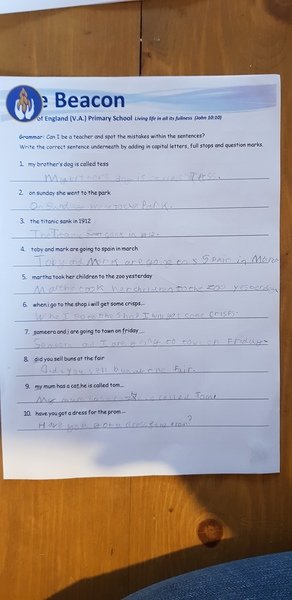 e Beacon
of England (V.A.) Primary School Living life in all its fullness (John 10:10)
Grammar: Can I be a teacher and spot the mistakes within the sentences?
Write the correct sentence underneath by adding in capital letters, full stops and question marks.
1. my brother's dog is called tess
dog is Tess.
2. on sunday she went to the park
On Sunday to the Park.
3. the titanic sank in 1912
The Titanic Sank in 1912.
4. toby and mark are going to spain in march
Toby and Mark are going to Spain in March
5. martha took her children to the zoo yesterday
took her children to the zoo yesterday
6. when i go to the shop i will get some crisps...
I go to the shop I will get some crisps.
7. sameera and j are going to town on friday ....
Sameera and I are going to town on Friday.
8. did you sell buns at the fair
Did you sell buns at the fair.
9. my mum has a cat he is called tom...
My mum has called Tom.
10. have you got a dress for the prom ...
Have you got a dress prom?